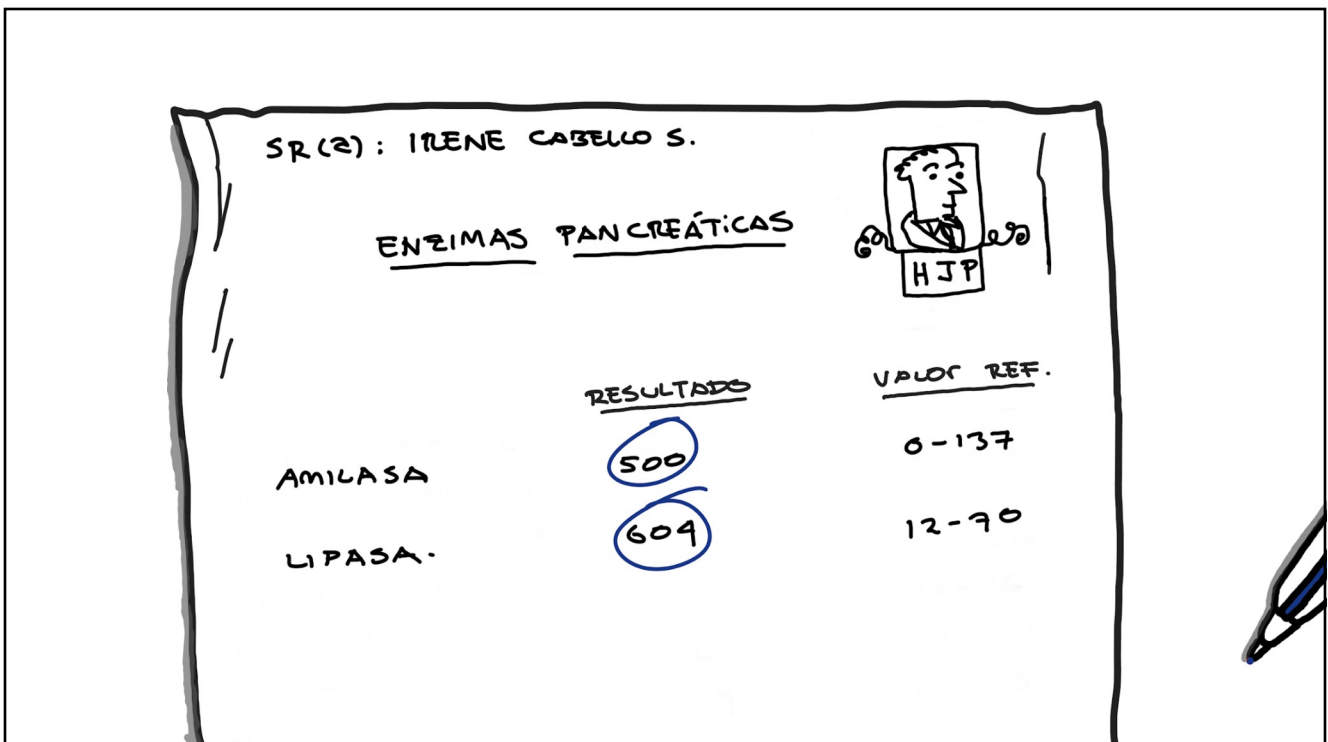 SR(a): IRENE CABELLO S.
ENZIMAS PANCREÁTICAS
HJP
RESULTADO VALOR REF.
AMILASA 500 0-137
LIPASA. 604 12-70